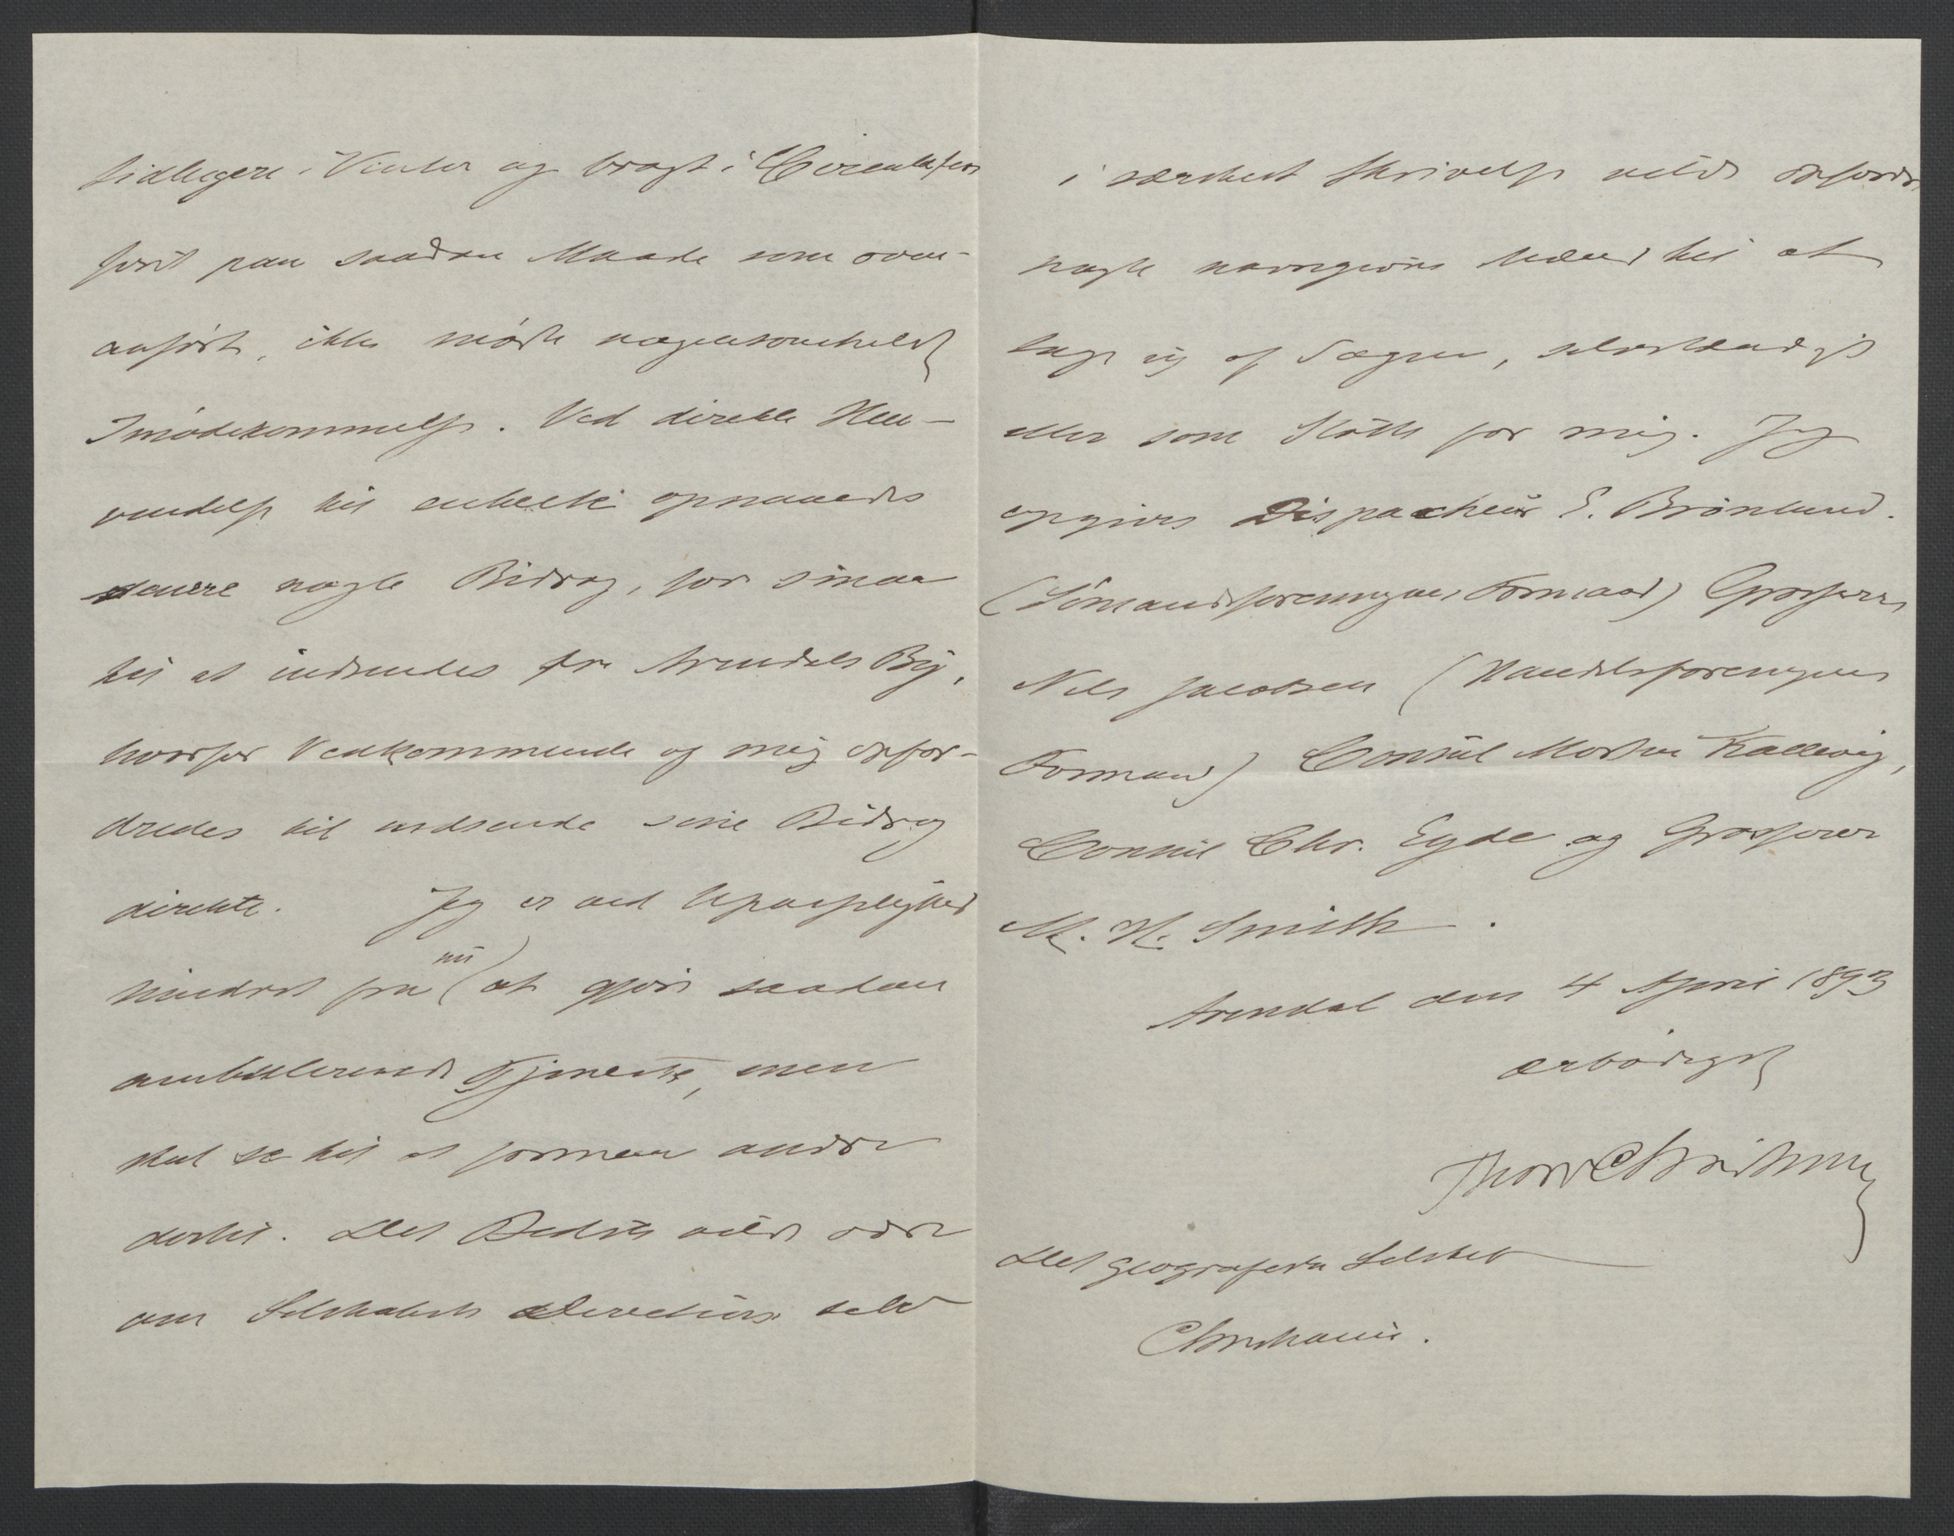 tidligere i Vinter og bragt i Circulation
her paa saadan Maade som oven-
anført, ikke mødte nogensomhelst
Imødekommelse. Ved direkte Hen-
vendelse til enkelte opnaaedes
senere nogle Bidrag, for smaa
til at indsendes fra Arendals By,
hvorfor Vedkommende og mig opfor-
dredes til indsende sine Bidrag
direkte. Jeg er ved Upasselighed
hindret fra nu at gjøre saadan
ambulerende Tjeneste, men
skal se til at formaa andre
dertil. Det Bedste vilde være
om Selskabets Direction selv
i særskilt Skrivelse vilde opfordre
nogle navngivne Mænd til at
tage sig af Sagen, selvstændigt
eller som Støtte for mig. Jeg
opgiver Dispacheur E. Brönlund.
(Sömandsforeningens Formand) Grosserer
Nils Jacobsen (Handelsforeningens
Formand) Consul Morten Kallevig,
Consul Chr. Eyde og Grosserer
M. H. Smith.
Arendal den 4 April 1893
ærbødigst
Thorv Christensen
Det geografiske Selskab
Christiania.